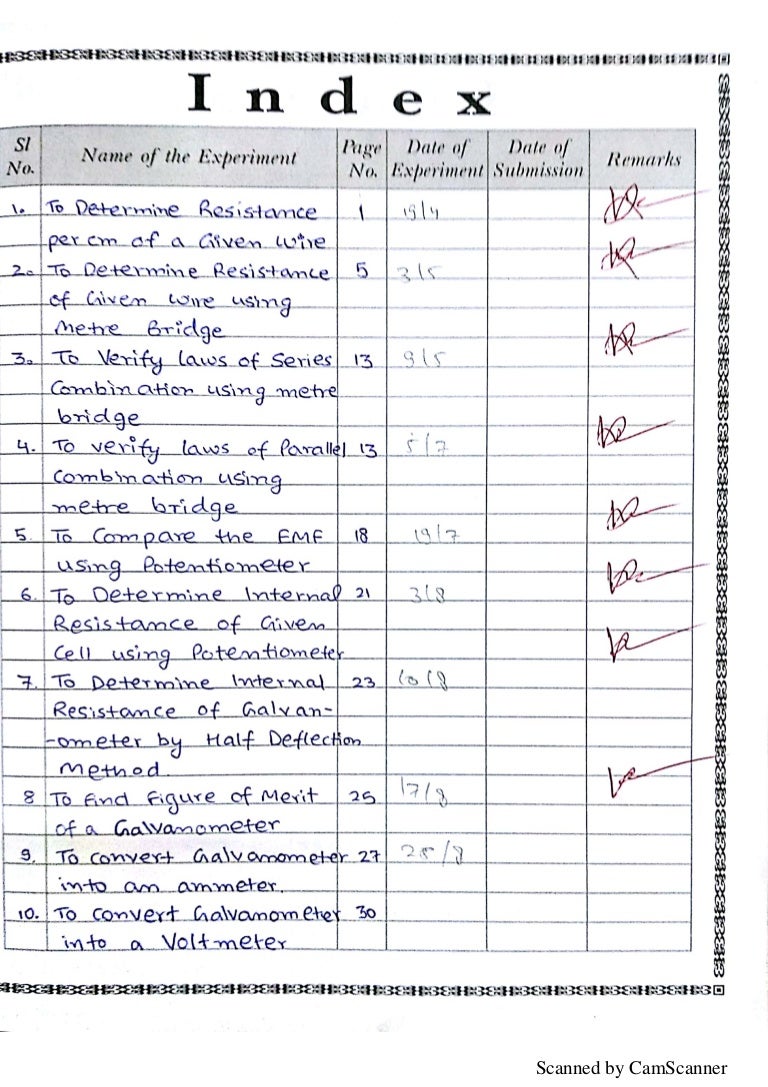 Index
Sl No. Name of the Experiment Page No. Date of Experiment Date of Submission Remarks
1. To Determine Resistance 1 19/4
per cm of a Given wire
2. To Determine Resistance 5 3/5
of Given wire using
Metre Bridge
3. To Verify laws of Series 13 9/5
Combination using metre
bridge
4. To verify laws of Parallel 13 5/7
Combination using
metre bridge
5. To Compare the EMF 18 19/7
using Potentiometer
6. To Determine Internal 21 3/8
Resistance of Given
Cell using Potentiometer
7. To Determine Internal 23 10/8
Resistance of Galvan-
-ometer by Half Deflection
Method.
8 To find figure of Merit 25 17/8
of a Galvanometer
9. To convert Galvanometer 27 /8
into an ammeter.
10. To convert Galvanometer 30
into a Voltmeter
Scanned by CamScanner